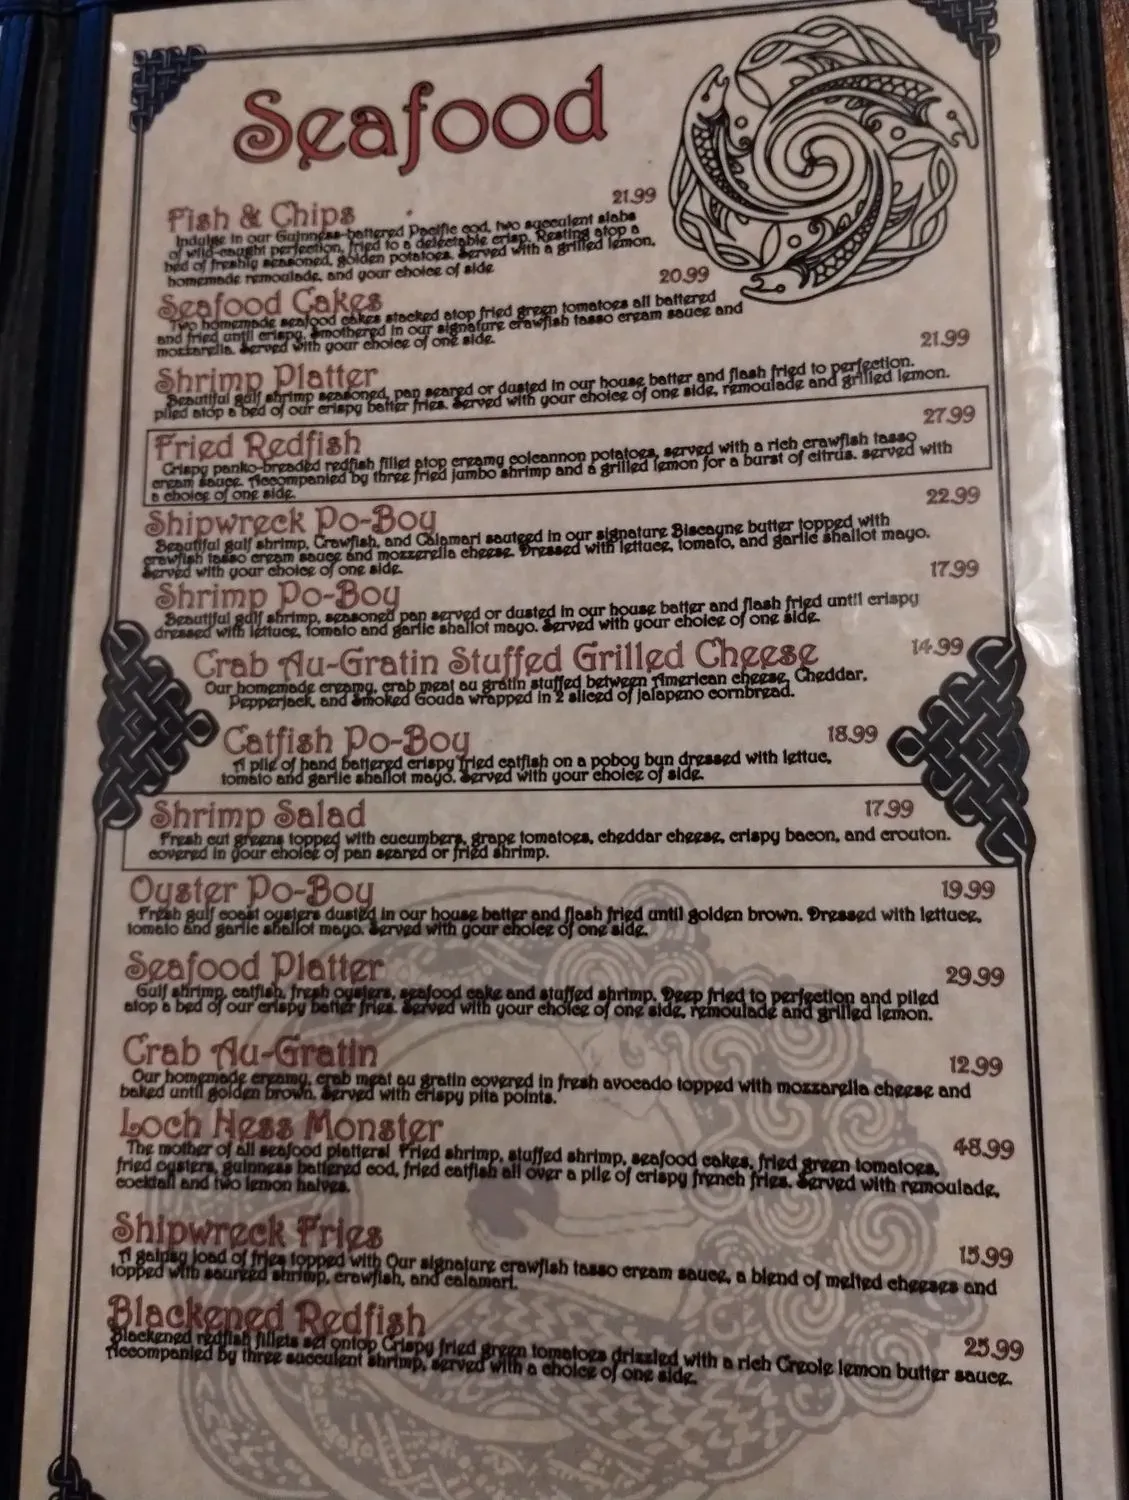 Seafood
Fish & Chips 21.99
Indulge in our Guinness-battered Pacific cod, two succulent slabs
of wild-caught perfection, fried to a delectable crisp. Resting atop a
bed of freshly seasoned, golden potatoes. Served with a grilled lemon,
homemade remoulade, and your choice of side
Seafood Cakes 20.99
Two homemade seafood cakes stacked atop fried green tomatoes all battered
and fried until crispy. Smothered in our signature crawfish tasso cream sauce and
mozzarella. Served with your choice of one side.
Shrimp Platter 21.99
Beautiful gulf shrimp seasoned, pan seared or dusted in our house batter and flash fried to perfection.
piled atop a bed of our crispy batter fries. Served with your choice of one side, remoulade and grilled lemon.
Fried Redfish 27.99
Crispy panko-breaded redfish fillet atop creamy colcannon potatoes, served with a rich crawfish tasso
cream sauce. Accompanied by three fried jumbo shrimp and a grilled lemon for a burst of citrus. served with
a choice of one side.
Shipwreck Po-Boy 22.99
Beautiful gulf shrimp, Crawfish, and Calamari sauteed in our signature Biscayne butter topped with
crawfish tasso cream sauce and mozzerella cheese. Dressed with lettuce, tomato, and garlic shallot mayo.
Served with your choice of one side.
Shrimp Po-Boy 17.99
Beautiful gulf shrimp, seasoned pan served or dusted in our house batter and flash fried until crispy
dressed with lettuce, tomato and garlic shallot mayo. Served with your choice of one side.
Crab Au-Gratin Stuffed Grilled Cheese 14.99
Our homemade creamy, crab meat au gratin stuffed between American cheese, Cheddar,
Pepperjack, and Smoked Gouda wrapped in 2 sliced of jalapeno cornbread.
Catfish Po-Boy 18.99
A pile of hand battered crispy fried catfish on a poboy bun dressed with lettuc,
tomato and garlic shallot mayo. Served with your choice of side.
Shrimp Salad 17.99
Fresh cut greens topped with cucumbers, grape tomatoes, cheddar cheese, crispy bacon, and crouton.
covered in your choice of pan seared or fried shrimp.
Oyster Po-Boy 19.99
Fresh gulf coast oysters dusted in our house batter and flash fried until golden brown. Dressed with lettuce,
tomato and garlic shallot mayo. Served with your choice of one side.
Seafood Platter 29.99
Gulf shrimp, catfish, fresh oysters, seafood cake and stuffed shrimp. Deep fried to perfection and piled
atop a bed of our crispy batter fries. Served with your choice of one side, remoulade and grilled lemon.
Crab Au-Gratin 12.99
Our homemade creamy, crab meat au gratin covered in fresh avocado topped with mozzarella cheese and
baked until golden brown. Served with crispy pita points.
Loch Ness Monster 48.99
The mother of all seafood platters! Fried shrimp, stuffed shrimp, seafood cakes, fried green tomatoes,
fried oysters, guinness battered cod, fried catfish all over a pile of crispy french fries. Served with remoulade,
cocktail and two lemon halves.
Shipwreck Fries 15.99
A galpsy load of fries topped with Our signature crawfish tasso cream sauce, a blend of melted cheeses and
topped with saureed shrimp, crawfish, and calamari.
Blackened Redfish 25.99
Blackened redfish fillets set ontop Crispy fried green tomatoes drizzled with a rich Creole lemon butter sauce.
Accompanied by three succulent shrimp, served with a choice of one side.